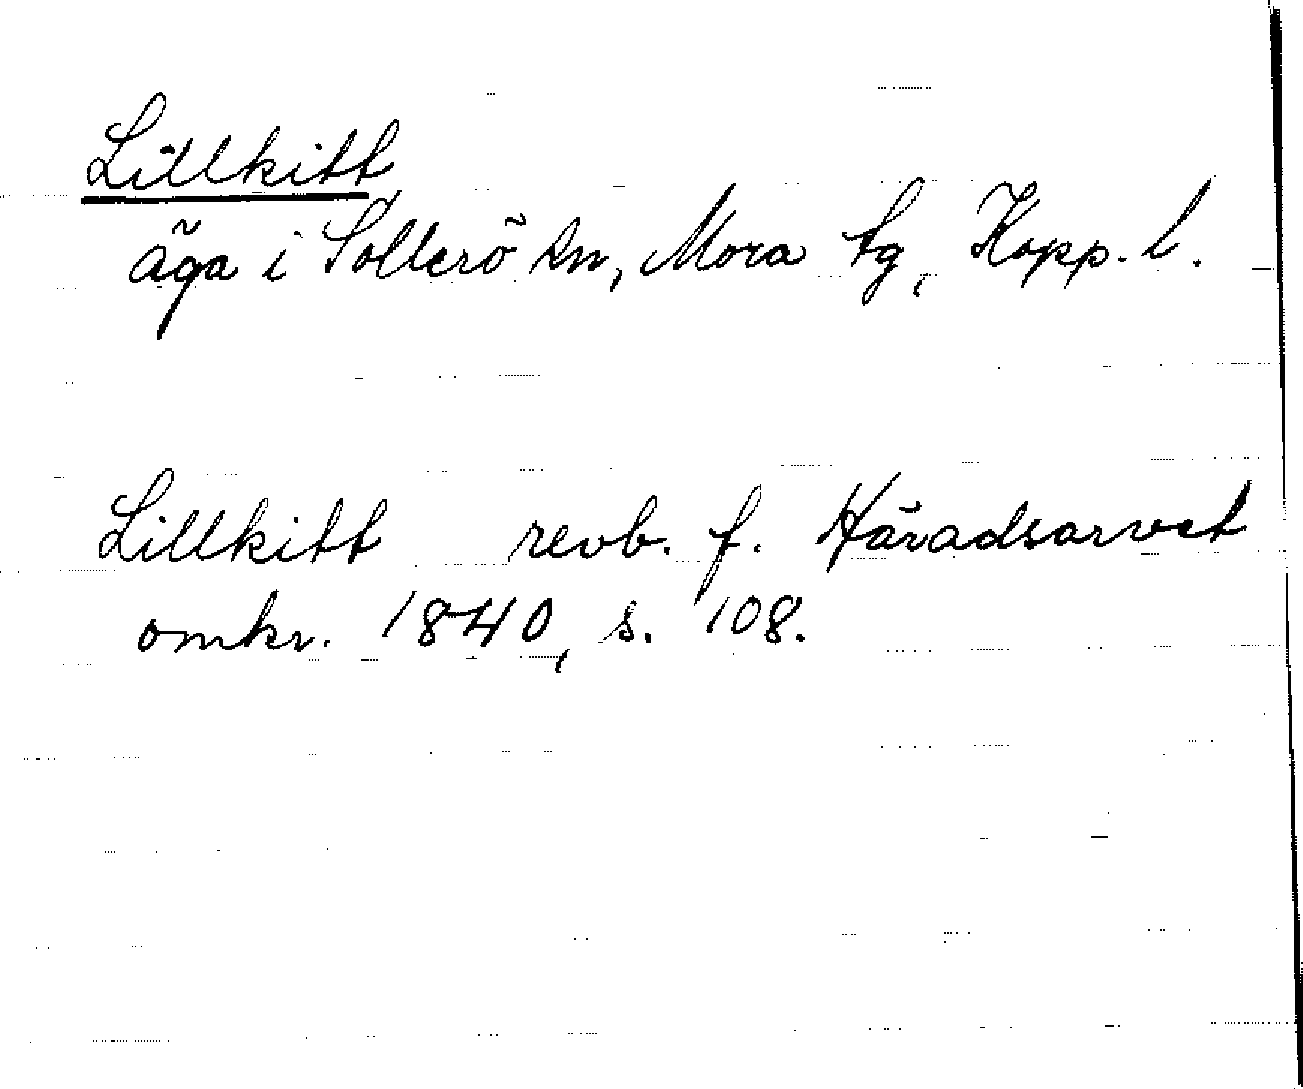 Lillkitt
äga i Sollerö sn, Mora tg, Kopp. l.
Lillkitt revb. f. Häradsarvet
omkr. 1840, s. 108.